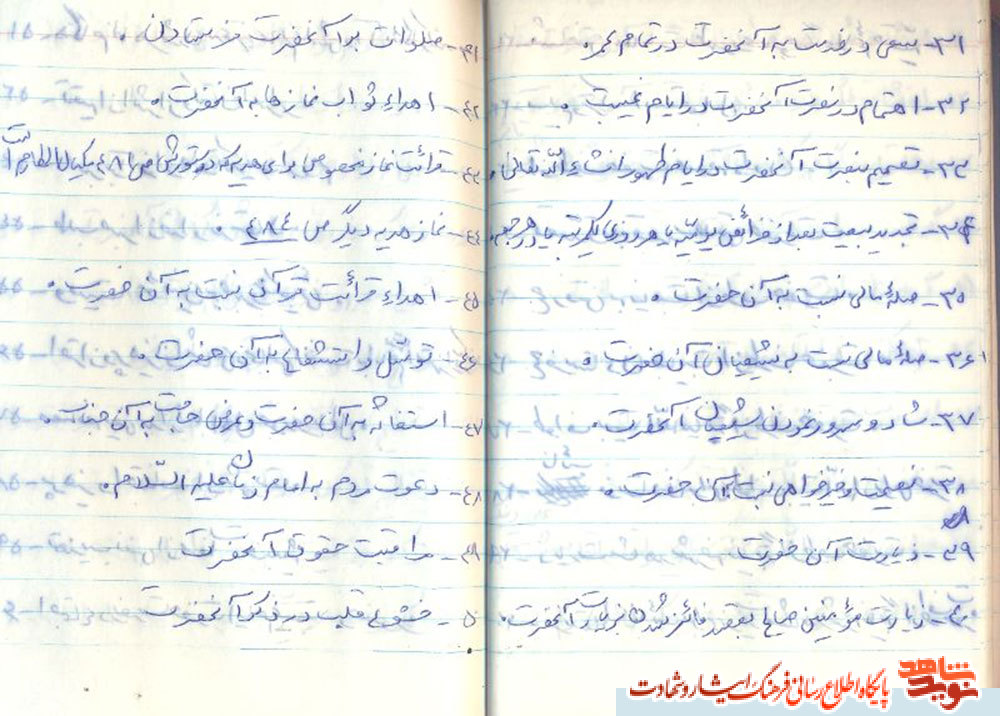 ۳۱- سعی در خدمت به آنحضرت در تمام عمر.
۳۲- اهتمام در نصرت آنحضرت در ایام غیبت.
۳۳- تصمیم بنصرت آنحضرت در ایام ظهور انشاءالله تعالی.
۳۴- تجدید بیعت بعد از فرائض یومیه یا هر روزی یکمرتبه یا در هر جمعه.
۳۵- صلهٔ مالی نسبت به آن حضرت.
۳۶- صلهٔ مالی نسبت به شیعیان آن حضرت.
۳۷- شاد و مسرور نمودن شیعیان آنحضرت.
۳۸- نصیحت و خیرخواهی نسبت به آن حضرت.
۳۹- زیارت آن حضرت.
۴۰- زیارت مؤمنین صالح بقصد فائز شدن بزیارت آنحضرت.
۴۱- صلوات برآنحضرت فرستادن.
۴۲- اهداء ثواب نمازها به آنحضرت.
۴۳- قرائت نماز مخصوصی برای هدیه که دستورش ص ۴۸۱ مکیال المکارم است
۴۴- نماز هدیه دیگر ص ۴۸۴.
۴۵- اهداء قرائت قرآن نسبت به آن حضرت.
۴۶- توسّل و استشفاع به آن حضرت.
۴۷- استغاثه به آن حضرت و عرض حاجت به آن جناب.
۴۸- دعوت مردم به امام زمان علیه السّلام.
۴۹- مراقبت حقوق آنحضرت
۵۰- خشوع قلب در ذکر آنحضرت
نوید شاهد
پایگاه اطلاع رسانی فرهنگ ایثار و شهادت